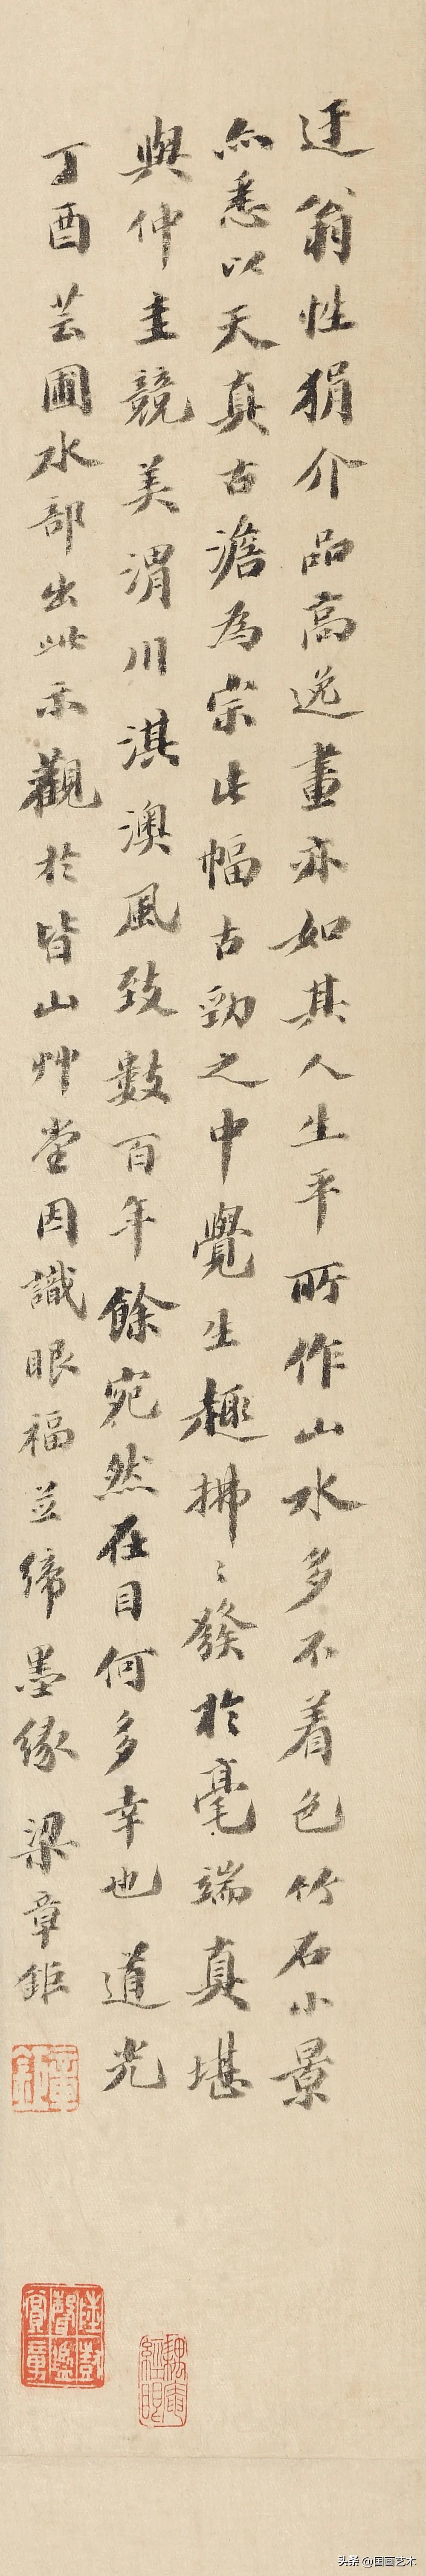 迂翁性狷介品高逸畫亦如其人生平所作山水多不着色竹石小景
亦悉以天真古澹為宗此幅古勁之中覺生趣拂〻發於毫端真堪
與仲圭競美渭川淇澳風致數百年餘宛然在目何多幸也道光
丁酉芸圃水部出此示觀於皆山艸堂因識眼福並締墨緣 梁章鉅
頭条 @国画艺术